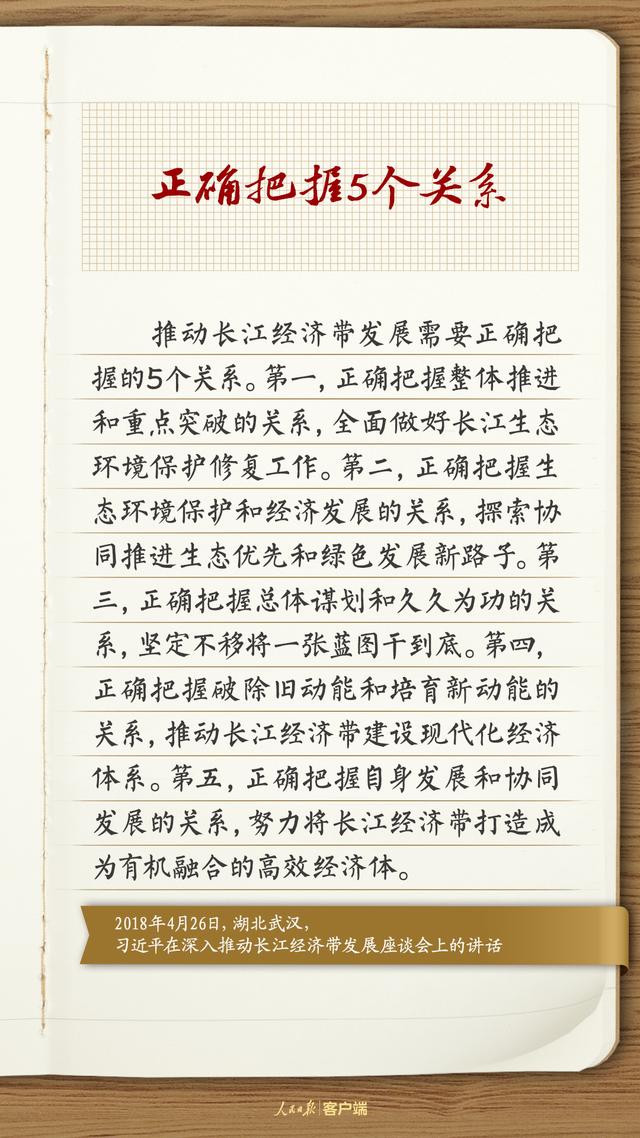 正确把握5个关系
推动长江经济带发展需要正确把
握的5个关系。第一，正确把握整体推进
和重点突破的关系，全面做好长江生态
环境保护修复工作。第二，正确把握生
态环境保护和经济发展的关系，探索协
同推进生态优先和绿色发展新路子。第
三，正确把握总体谋划和久久为功的关
系，坚定不移将一张蓝图干到底。第四，
正确把握破除旧动能和培育新动能的
关系，推动长江经济带建设现代化经济
体系。第五，正确把握自身发展和协同
发展的关系，努力将长江经济带打造成
为有机融合的高效经济体。
2018年4月26日，湖北武汉，
习近平在深入推动长江经济带发展座谈会上的讲话
人民日报|客户端